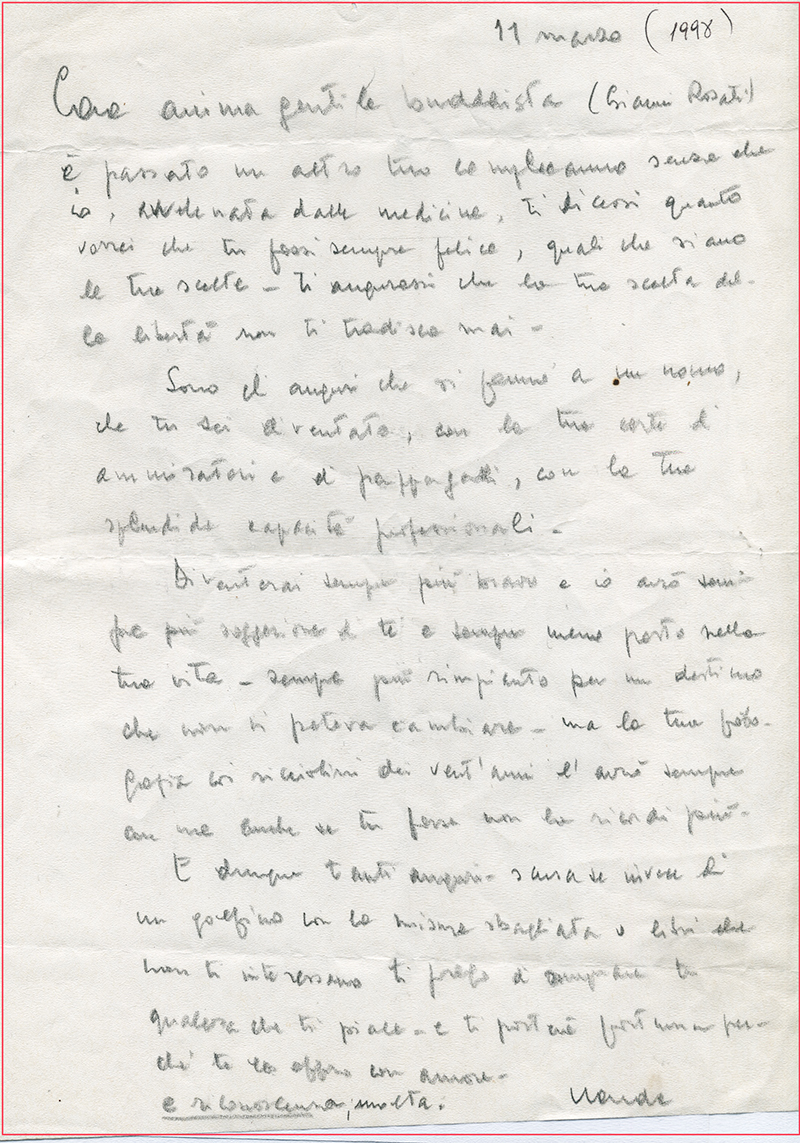 11 marzo (1998)
Cara anima gentile buddista (Gianni Rosati)
è passato un altro tuo compleanno senza che
io, avvelenata dalle medicine, ti dicessi quanto
vorrei che tu fossi sempre felice, quali che siano
le tue scelte - ti augurassi che la tua scelta del-
la libertà non ti tradisca mai -
Sono gli auguri che si fanno a un nonno,
che tu sei diventato, con la tua corte di
ammiratori e di pappagalli, con le tue
splendide capacità professionali -
Diventerai sempre più bravo e io avrò sem
pre più soggezione di te e sempre meno posto nella
tua vita - sempre più rimpianto per un destino
che non si poteva cambiare - ma la tua foto-
grafia coi ricciolini dei vent'anni l'avrò sempre
con me anche se tu forse non la ricordi più -
E dunque tanti auguri - scusa se invece di
un golfino con la misura sbagliata o libri che
non ti interessano ti prego di comprare tu
qualcosa che ti piace - e ti porterà fortuna per-
ché te lo offro con amore -
e riconoscenza, molta. Nanda